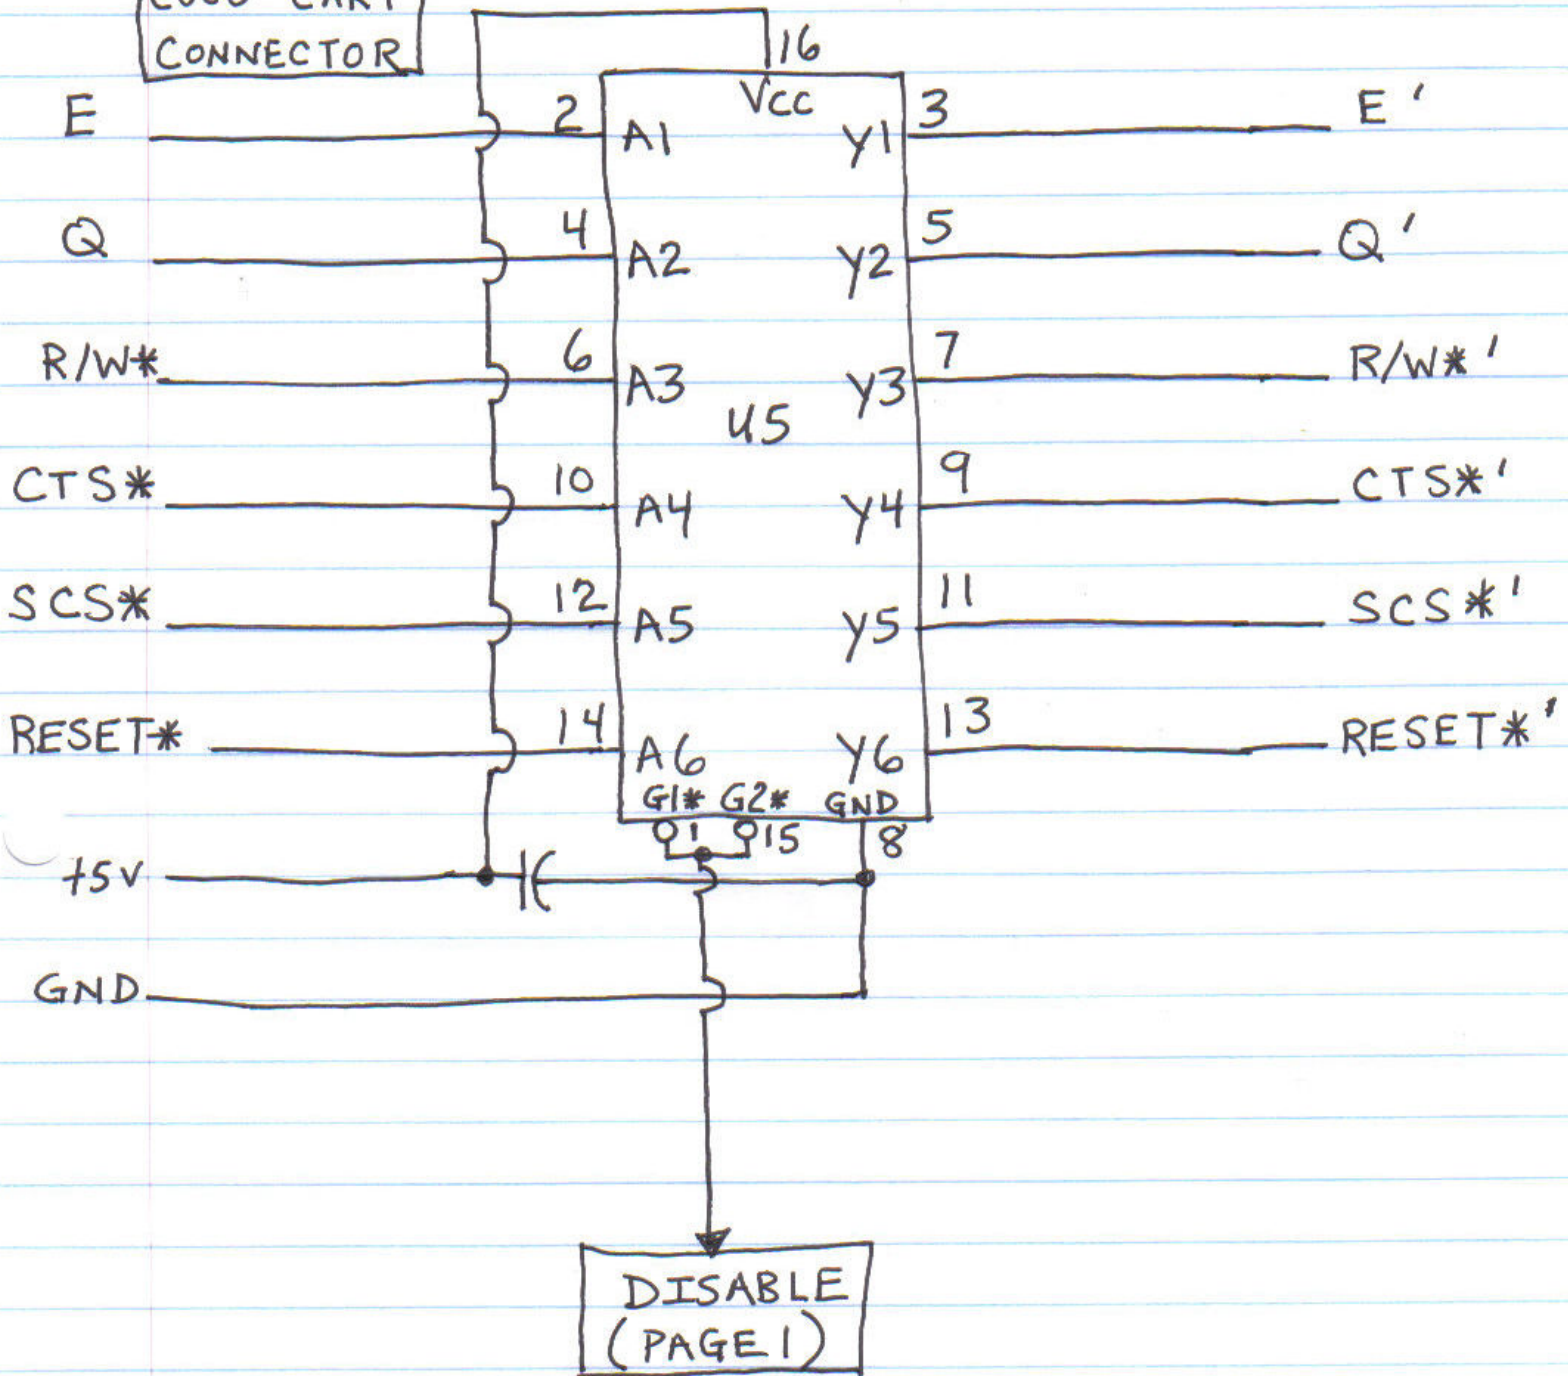 CONNECTOR
16
VCC
E 2 A1 Y1 3 E'
Q 4 A2 Y2 5 Q'
R/W* 6 A3 Y3 7 R/W*'
U5
CTS* 10 A4 Y4 9 CTS*'
SCS* 12 A5 Y5 11 SCS*'
RESET* 14 A6 Y6 13 RESET*'
G1* G2* GND
1 15 8
+5V
GND
DISABLE
(PAGE 1)